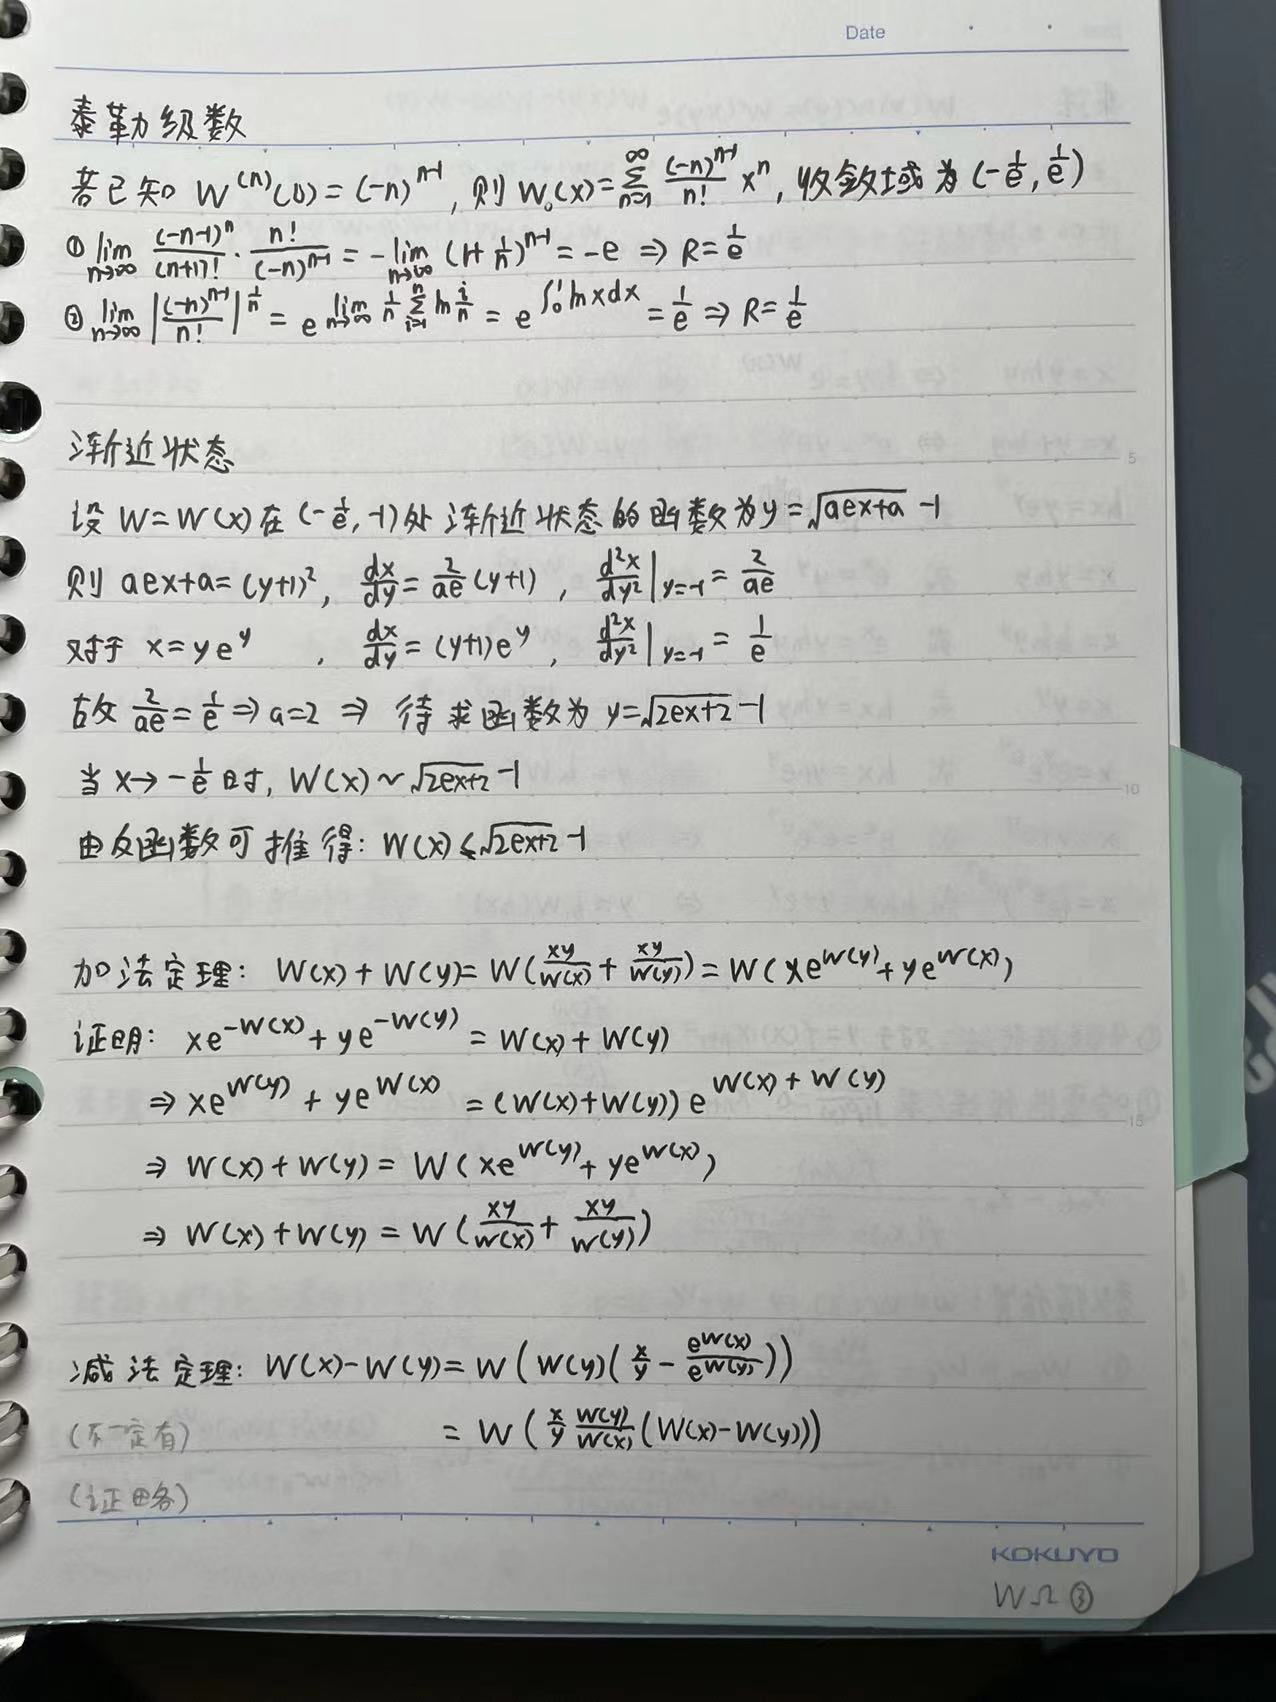 Date
泰勒级数
若已知 W^(n)(0)=(-n)^{n-1}, 则 W₀(x)=∑_{n=1}^{∞} (-n)^{n-1}/n! x^n, 收敛域为(-1/e, 1/e)
① lim_{n→∞} (-n-1)^n/(n+1)! · n!/(-n)^{n-1} = -lim_{n→∞} (1+1/n)^{n-1} = -e ⇒ R=1/e
② lim_{n→∞} |(-n)^{n-1}/n!|^{1/n} = e^{lim_{n→∞} 1/n ∑_{i=1}^{n} ln i/n} = e^{∫₀¹ lnxdx} = 1/e ⇒ R=1/e
渐近状态
设 W=W(x)在(-1/e, -1)处渐近状态的函数为y=√(aex+a) -1
则 aex+a=(y+1)², dx/dy=2/ae (y+1), d²x/dy²|_{y=-1}=2/ae
对于 x=ye^y , dx/dy=(y+1)e^y, d²x/dy²|_{y=-1}=1/e
故 2/ae=1/e ⇒ a=2 ⇒ 待求函数为 y=√(2ex+2) -1
当 x→-1/e 时, W(x)~√(2ex+2) -1
由反函数可推得: W(x)≤√(2ex+2) -1
加法定理: W(x)+W(y)=W(xy/W(x) + xy/W(y))=W(xe^{W(y)}+ye^{W(x)})
证明: xe^{-W(x)}+ye^{-W(y)}=W(x)+W(y)
⇒ xe^{W(y)}+ye^{W(x)}=(W(x)+W(y))e^{W(x)+W(y)}
⇒ W(x)+W(y)=W(xe^{W(y)}+ye^{W(x)})
⇒ W(x)+W(y)=W(xy/W(x)+xy/W(y))
减法定理: W(x)-W(y)=W(W(y)(x/y - e^{W(x)}/e^{W(y)}))
(不一定有) =W(x/y W(y)/W(x) (W(x)-W(y)))
(证略)
KOKUYO
WΩ③
5
10
15